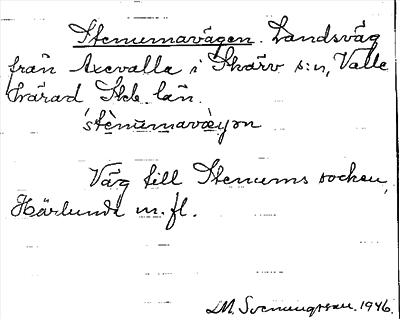 Stenumavägen. Landsväg
från Axevalla i Skärv s:n, Valle
härad Skb. län.
'stènumavæyən
Väg till Stenums socken,
Härlunda m. fl.
LM. Svenungsson. 1946.